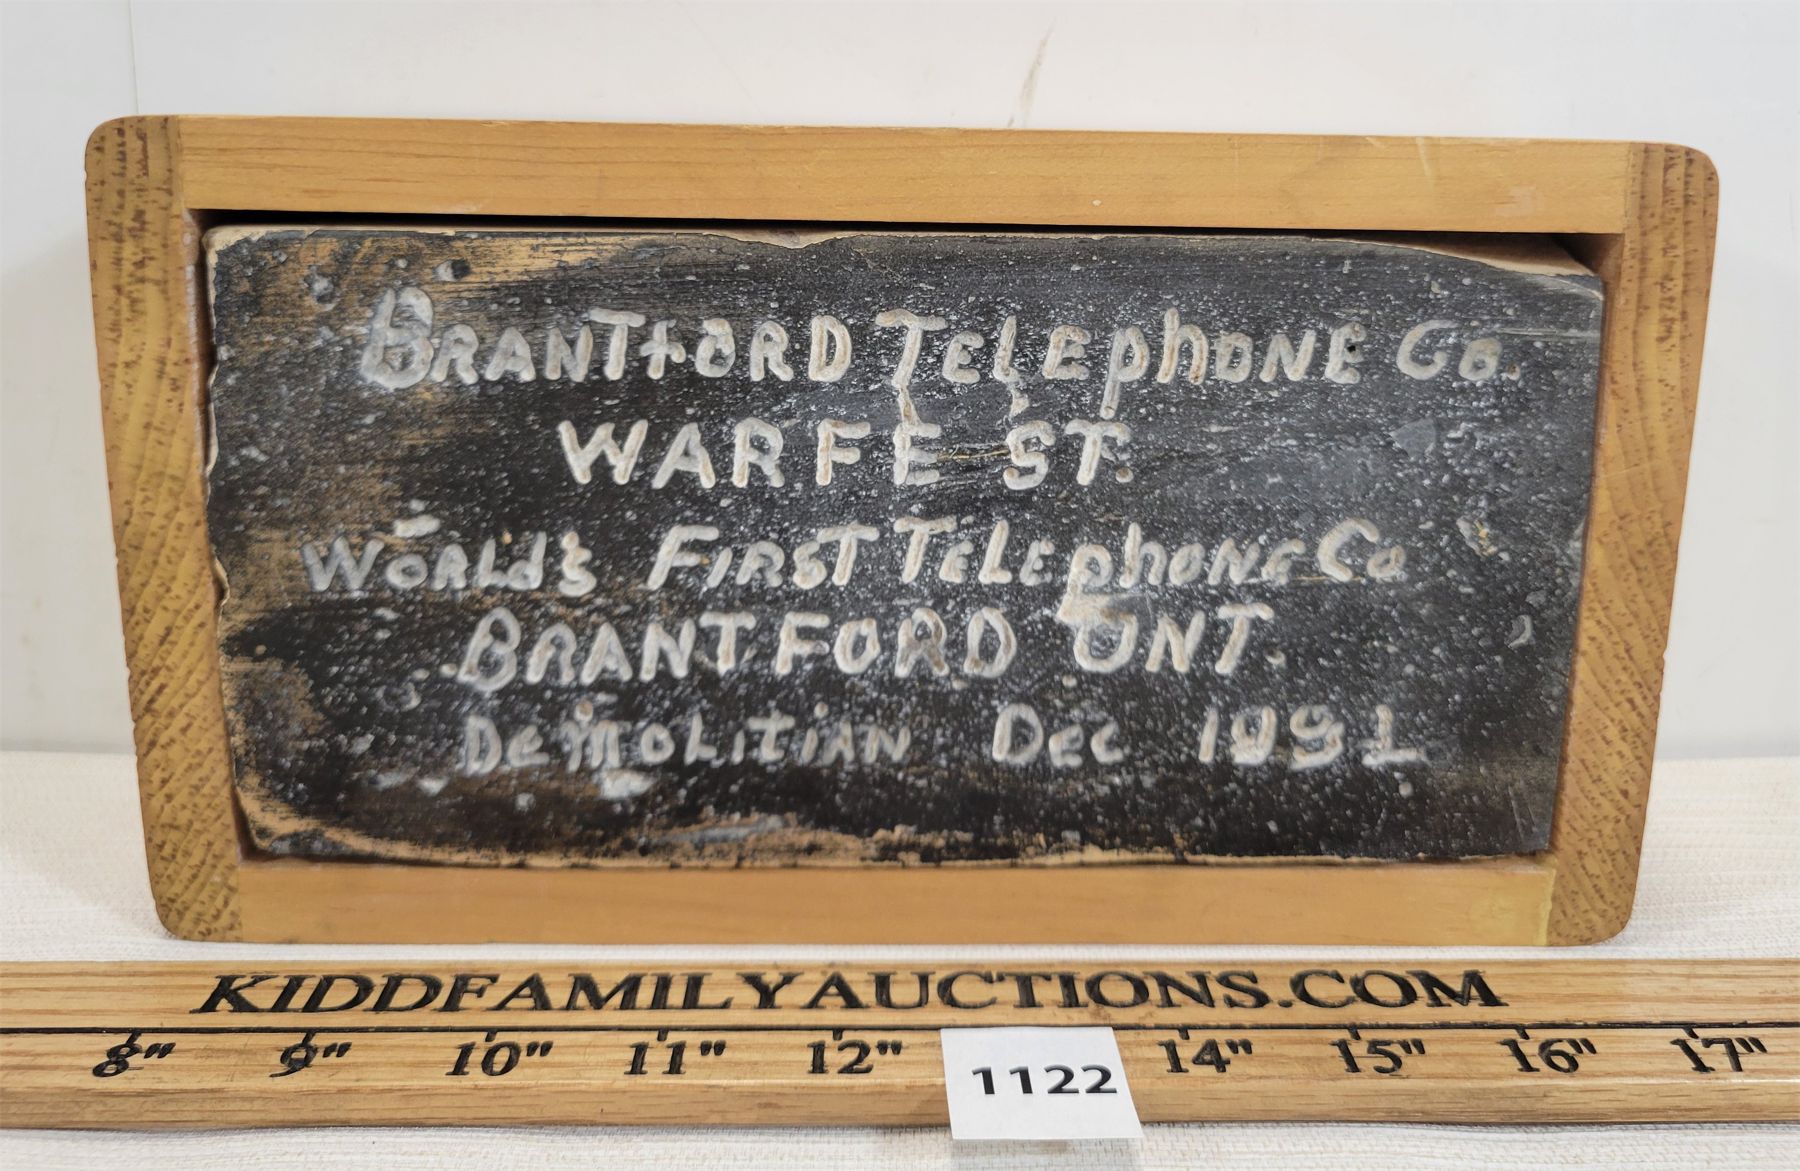 BRANTfORD TELephONE Co.
WARFE ST.
WORLd's FIRST TeLephONE Co
BRANTFORD ONT.
DeMOLiTiAN Dec 1991
KIDDFAMILYAUCTIONS.COM
8" 9" 10" 11" 12" 14" 15" 16" 17"
1122